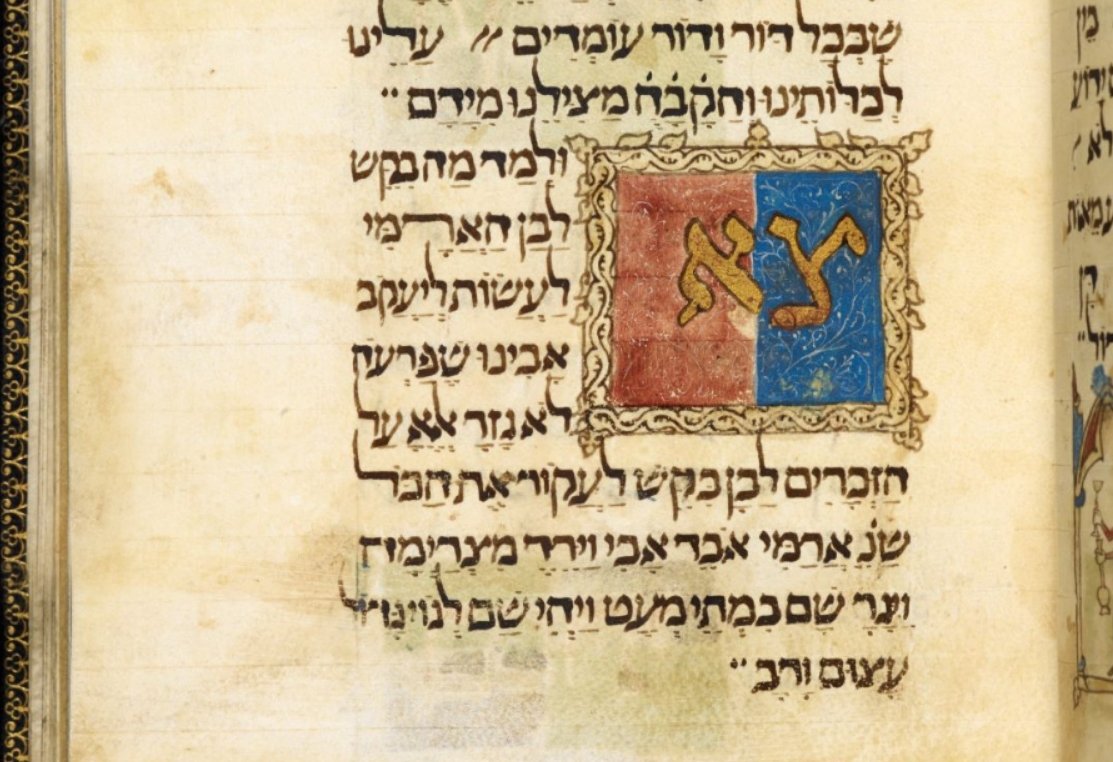 שבכל דור ודור עומדים עלינו
לכלותינו והק'ב'ה' מצילנו מידם
צא
ולמד מה בקש
לבן הארמי
לעשות ליעקב
אבינו שפרעה
לא גזר אלא על
הזכרים לבן בקש לעקור את הכל
שנ' ארמי אבד אבי וירד מצרימה
ויגר שם במתי מעט ויהי שם לגוי גדול
עצום ורב